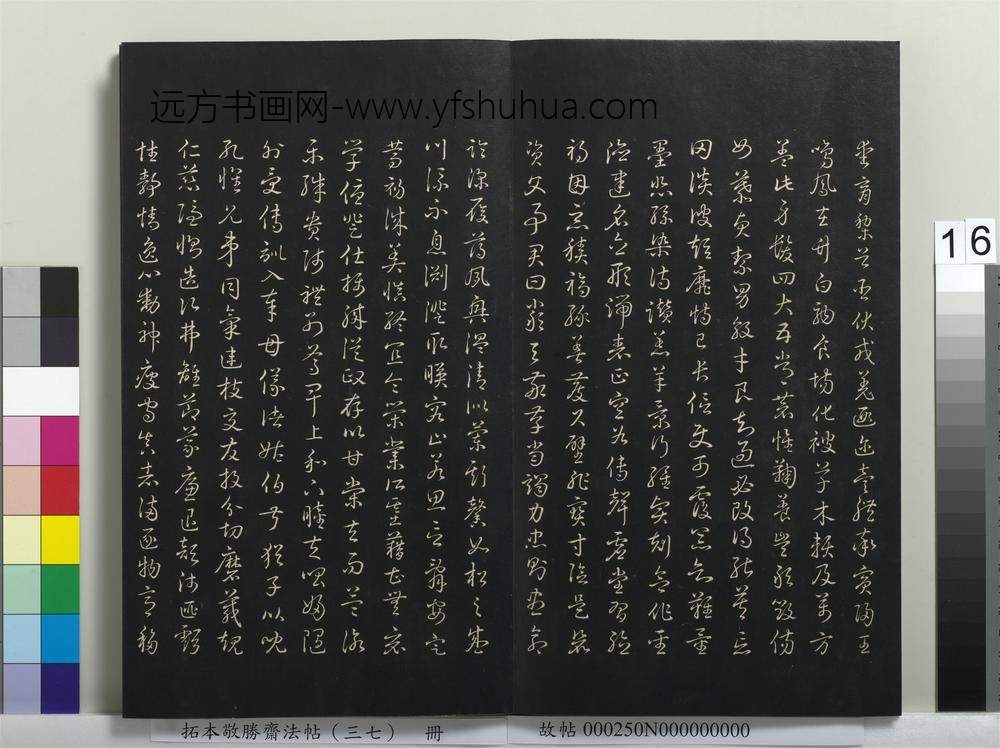 远方书画网-www.yfshuhua.com
愛育黎首臣伏戎羌遐邇壹體率賓歸王
鳴鳳在竹白駒食場化被草木賴及萬方
蓋此身髮四大五常恭惟鞠養豈敢毀傷
女慕貞絜男效才良知過必改得能莫忘
罔談彼短靡恃己長信使可覆器欲難量
墨悲絲染詩讚羔羊景行維賢剋念作聖
德建名立形端表正空谷傳聲虛堂習聽
禍因惡積福緣善慶尺璧非寶寸陰是競
資父事君曰嚴與敬孝當竭力忠則盡命
臨深履薄夙興溫清似蘭斯馨如松之盛
川流不息淵澄取暎容止若思言辭安定
篤初誠美慎終宜令榮業所基藉甚無竟
學優登仕攝職從政存以甘棠去而益詠
樂殊貴賤禮別尊卑上和下睦夫唱婦隨
外受傅訓入奉母儀諸姑伯叔猶子比兒
孔懷兄弟同氣連枝交友投分切磨箴規
仁慈隱惻造次弗離節義廉退顛沛匪虧
性靜情逸心動神疲守真志滿逐物意移
16
拓本敬勝齋法帖（三七） 冊
故帖 000250N000000000